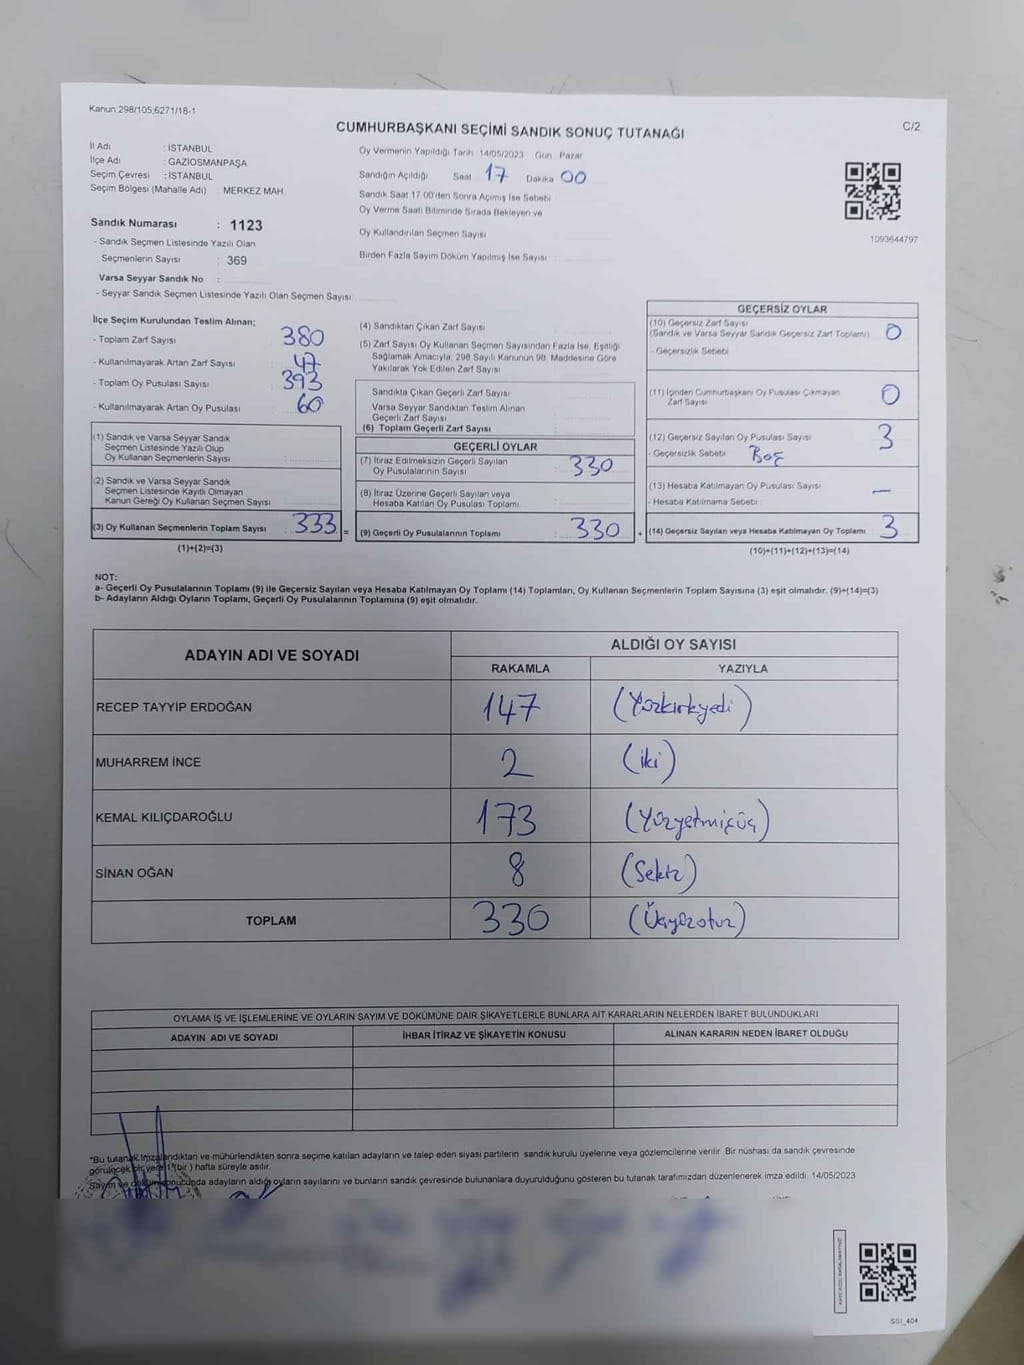 Kanun:298/105;6271/18-1
CUMHURBAŞKANI SEÇİMİ SANDIK SONUÇ TUTANAĞI
C/2
İl Adı : İSTANBUL
İlçe Adı : GAZİOSMANPAŞA
Seçim Çevresi : İSTANBUL
Seçim Bölgesi (Mahalle Adı) : MERKEZ MAH.
Oy Vermenin Yapıldığı Tarih 14/05/2023 Gün Pazar
Sandığın Açıldığı Saat 17 Dakika 00
Sandık Saat 17.00'den Sonra Açımış İse Sebebi
Oy Verme Saati Bitiminde Sırada Bekleyen ve
Oy Kullandırılan Seçmen Sayısı
Birden Fazla Sayım Döküm Yapılmış İse Sayısı :
1093644797
Sandık Numarası : 1123
- Sandık Seçmen Listesinde Yazılı Olan
Seçmenlerin Sayısı : 369
Varsa Seyyar Sandık No :
- Seyyar Sandık Seçmen Listesinde Yazılı Olan Seçmen Sayısı:
İlçe Seçim Kurulundan Teslim Alınan;
- Toplam Zarf Sayısı 380
- Kullanılmayarak Artan Zarf Sayısı 47
- Toplam Oy Pusulası Sayısı 393
- Kullanılmayarak Artan Oy Pusulası 60
(1) Sandık ve Varsa Seyyar Sandık
Seçmen Listesinde Yazılı Olup
Oy Kullanan Seçmenlerin Sayısı :
(2) Sandık ve Varsa Seyyar Sandık
Seçmen Listesinde Kayıtlı Olmayan
Kanun Gereği Oy Kullanan Seçmen Sayısı :
(3) Oy Kullanan Seçmenlerin Toplam Sayısı : 333 =
(1)+(2)=(3)
(4) Sandıktan Çıkan Zarf Sayısı
(5) Zarf Sayısı Oy Kullanan Seçmen Sayısından Fazla İse, Eşitliği
Sağlamak Amacıyla, 298 Sayılı Kanunun 98. Maddesine Göre
Yakılarak Yok Edilen Zarf Sayısı
Sandıkta Çıkan Geçerli Zarf Sayısı
Varsa Seyyar Sandıktan Teslim Alınan
Geçerli Zarf Sayısı
(6) Toplam Geçerli Zarf Sayısı
GEÇERLİ OYLAR
(7) İtiraz Edilmeksizin Geçerli Sayılan
Oy Pusulalarının Sayısı 330
(8) İtiraz Üzerine Geçerli Sayılan veya
Hesaba Katılan Oy Pusulası Toplamı
(9) Geçerli Oy Pusulalarının Toplamı 330 +
GEÇERSİZ OYLAR
(10) Geçersiz Zarf Sayısı
(Sandık ve Varsa Seyyar Sandık Geçersiz Zarf Toplamı) 0
- Geçersizlik Sebebi
(11) İçinden Cumhurbaşkanı Oy Pusulası Çıkmayan
Zarf Sayısı 0
(12) Geçersiz Sayılan Oy Pusulası Sayısı 3
- Geçersizlik Sebebi Boş
(13) Hesaba Katılmayan Oy Pusulası Sayısı —
- Hesaba Katılmama Sebebi :
(14) Geçersiz Sayılan veya Hesaba Katılmayan Oy Toplamı : 3
(10)+(11)+(12)+(13)=(14)
NOT:
a- Geçerli Oy Pusulalarının Toplamı (9) ile Geçersiz Sayılan veya Hesaba Katılmayan Oy Toplamı (14) Toplamları, Oy Kullanan Seçmenlerin Toplam Sayısına (3) eşit olmalıdır. (9)+(14)=(3)
b- Adayların Aldığı Oyların Toplamı, Geçerli Oy Pusulalarının Toplamına (9) eşit olmalıdır.
ADAYIN ADI VE SOYADI
ALDIĞI OY SAYISI
RAKAMLA YAZIYLA
RECEP TAYYİP ERDOĞAN 147 (Yüzkırkyedi)
MUHARREM İNCE 2 (iki)
KEMAL KILIÇDAROĞLU 173 (Yüzyetmişüç)
SİNAN OĞAN 8 (Sekiz)
TOPLAM 330 (Üçyüzotuz)
OYLAMA İŞ VE İŞLEMLERİNE VE OYLARIN SAYIM VE DÖKÜMÜNE DAİR ŞİKAYETLERLE BUNLARA AİT KARARLARIN NELERDEN İBARET BULUNDUKLARI
ADAYIN ADI VE SOYADI İHBAR İTİRAZ VE ŞİKAYETİN KONUSU ALINAN KARARIN NEDEN İBARET OLDUĞU
*Bu tutanak imzalandıktan ve mühürlendikten sonra seçime katılan adayların ve talep eden siyasi partilerin sandık kurulu üyelerine veya gözlemcilerine verilir. Bir nüshası da sandık çevresinde
görülecek bir yere 1 (bir) hafta süreyle asılır.
Sayım ve döküm sonucunda adayların aldığı oyların sayılarını ve bunların sandık çevresinde bulunanlara duyurulduğunu gösteren bu tutanak tarafımızdan düzenlenerek imza edildi. 14/05/2023
SSI_404